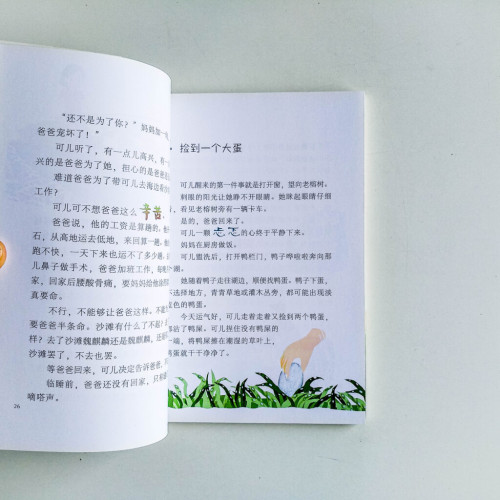 “还不是为了你？”妈妈加一
爸爸宠坏了！”
可儿听了，有一点儿高兴，有一
兴的是爸爸为了她，担心的是爸爸
难道爸爸为了带可儿去海边
工作？
可儿可不想爸爸这么辛苦。
爸爸说，他的工资是算趟的，他
石，从高地运去低地，来回算一趟。他
跑不快，一天下来也运不了多少趟。
儿鼻子做手术，爸爸加班工作，每晚
回家，回家后腰酸骨痛，要妈妈给他
真要命。
不行，不能够让爸爸这样。爸爸
要爸爸半条命。沙滩有什么了不起？
去了沙滩魏麒麟还是魏麒麟，还
沙滩罢了，不去也罢。
等爸爸回来，可儿决定告诉爸爸，
临睡前，爸爸还没有回家，只和
嘀嗒声。
26
捡到一个大蛋
可儿醒来的第一件事就是打开窗，望向老榕树。
刺眼的阳光让她睁不开眼睛。她眯起眼睛仔细
看见老榕树旁有一辆卡车。
是的，爸爸回来了。
可儿一颗忐忑的心终于平静下来。
妈妈在厨房做饭。
可儿盥洗后，打开鸭栏门，鸭子哗啦啦奔向那
她随着鸭子走往湖边，顺便找鸭蛋。鸭子下蛋，
选择地方，青青草地或灌木丛旁，都可能出现淡
色的鸭蛋。
今天运气好，可儿走着走着又捡到两个鸭蛋，
沾了鸭屎。可儿捏住没有鸭屎的
一端，将鸭屎擦在潮湿的草叶上，
蛋就干干净净了。